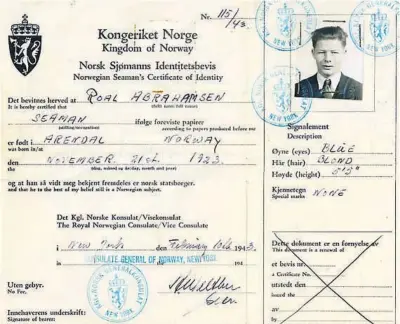 Nr. 115/43.
Kongeriket Norge
Kingdom of Norway
Norsk Sjømanns Identitetsbevis
Norwegian Seaman's Certificate of Identity
Det bevitnes herved at ROAL ABRAHAMSEN
It is hereby certified that
SEAMAN ifølge foreviste papirer
according to papers produced before me
er født i ARENDAL NORWAY
was born in/at
den NOVEMBER 21st. 1923.
the
og at han så vidt meg bekjent fremdeles er norsk statsborger.
and that to the best of my belief still is a Norwegian subject.
Det Kgl. Norske Konsulat/Visekonsulat
The Royal Norwegian Consulate/Vice Consulate
i New York den February 1943.
in the
GENERAL OF NORWAY, NEW YORK
Uten gebyr.
No Fee.
Innehaverens underskrift:
NEW YORK
Signalement
Description
Øyne (eyes) BLUE
Hår (hair) BLOND
Høyde (height)
Kjennetegn NONE
Special marks
Dette dokument er en fornyelse av
This document is a renewal of
et bevis nr.
a Certificate No.
utstedt den
issued the
av
by